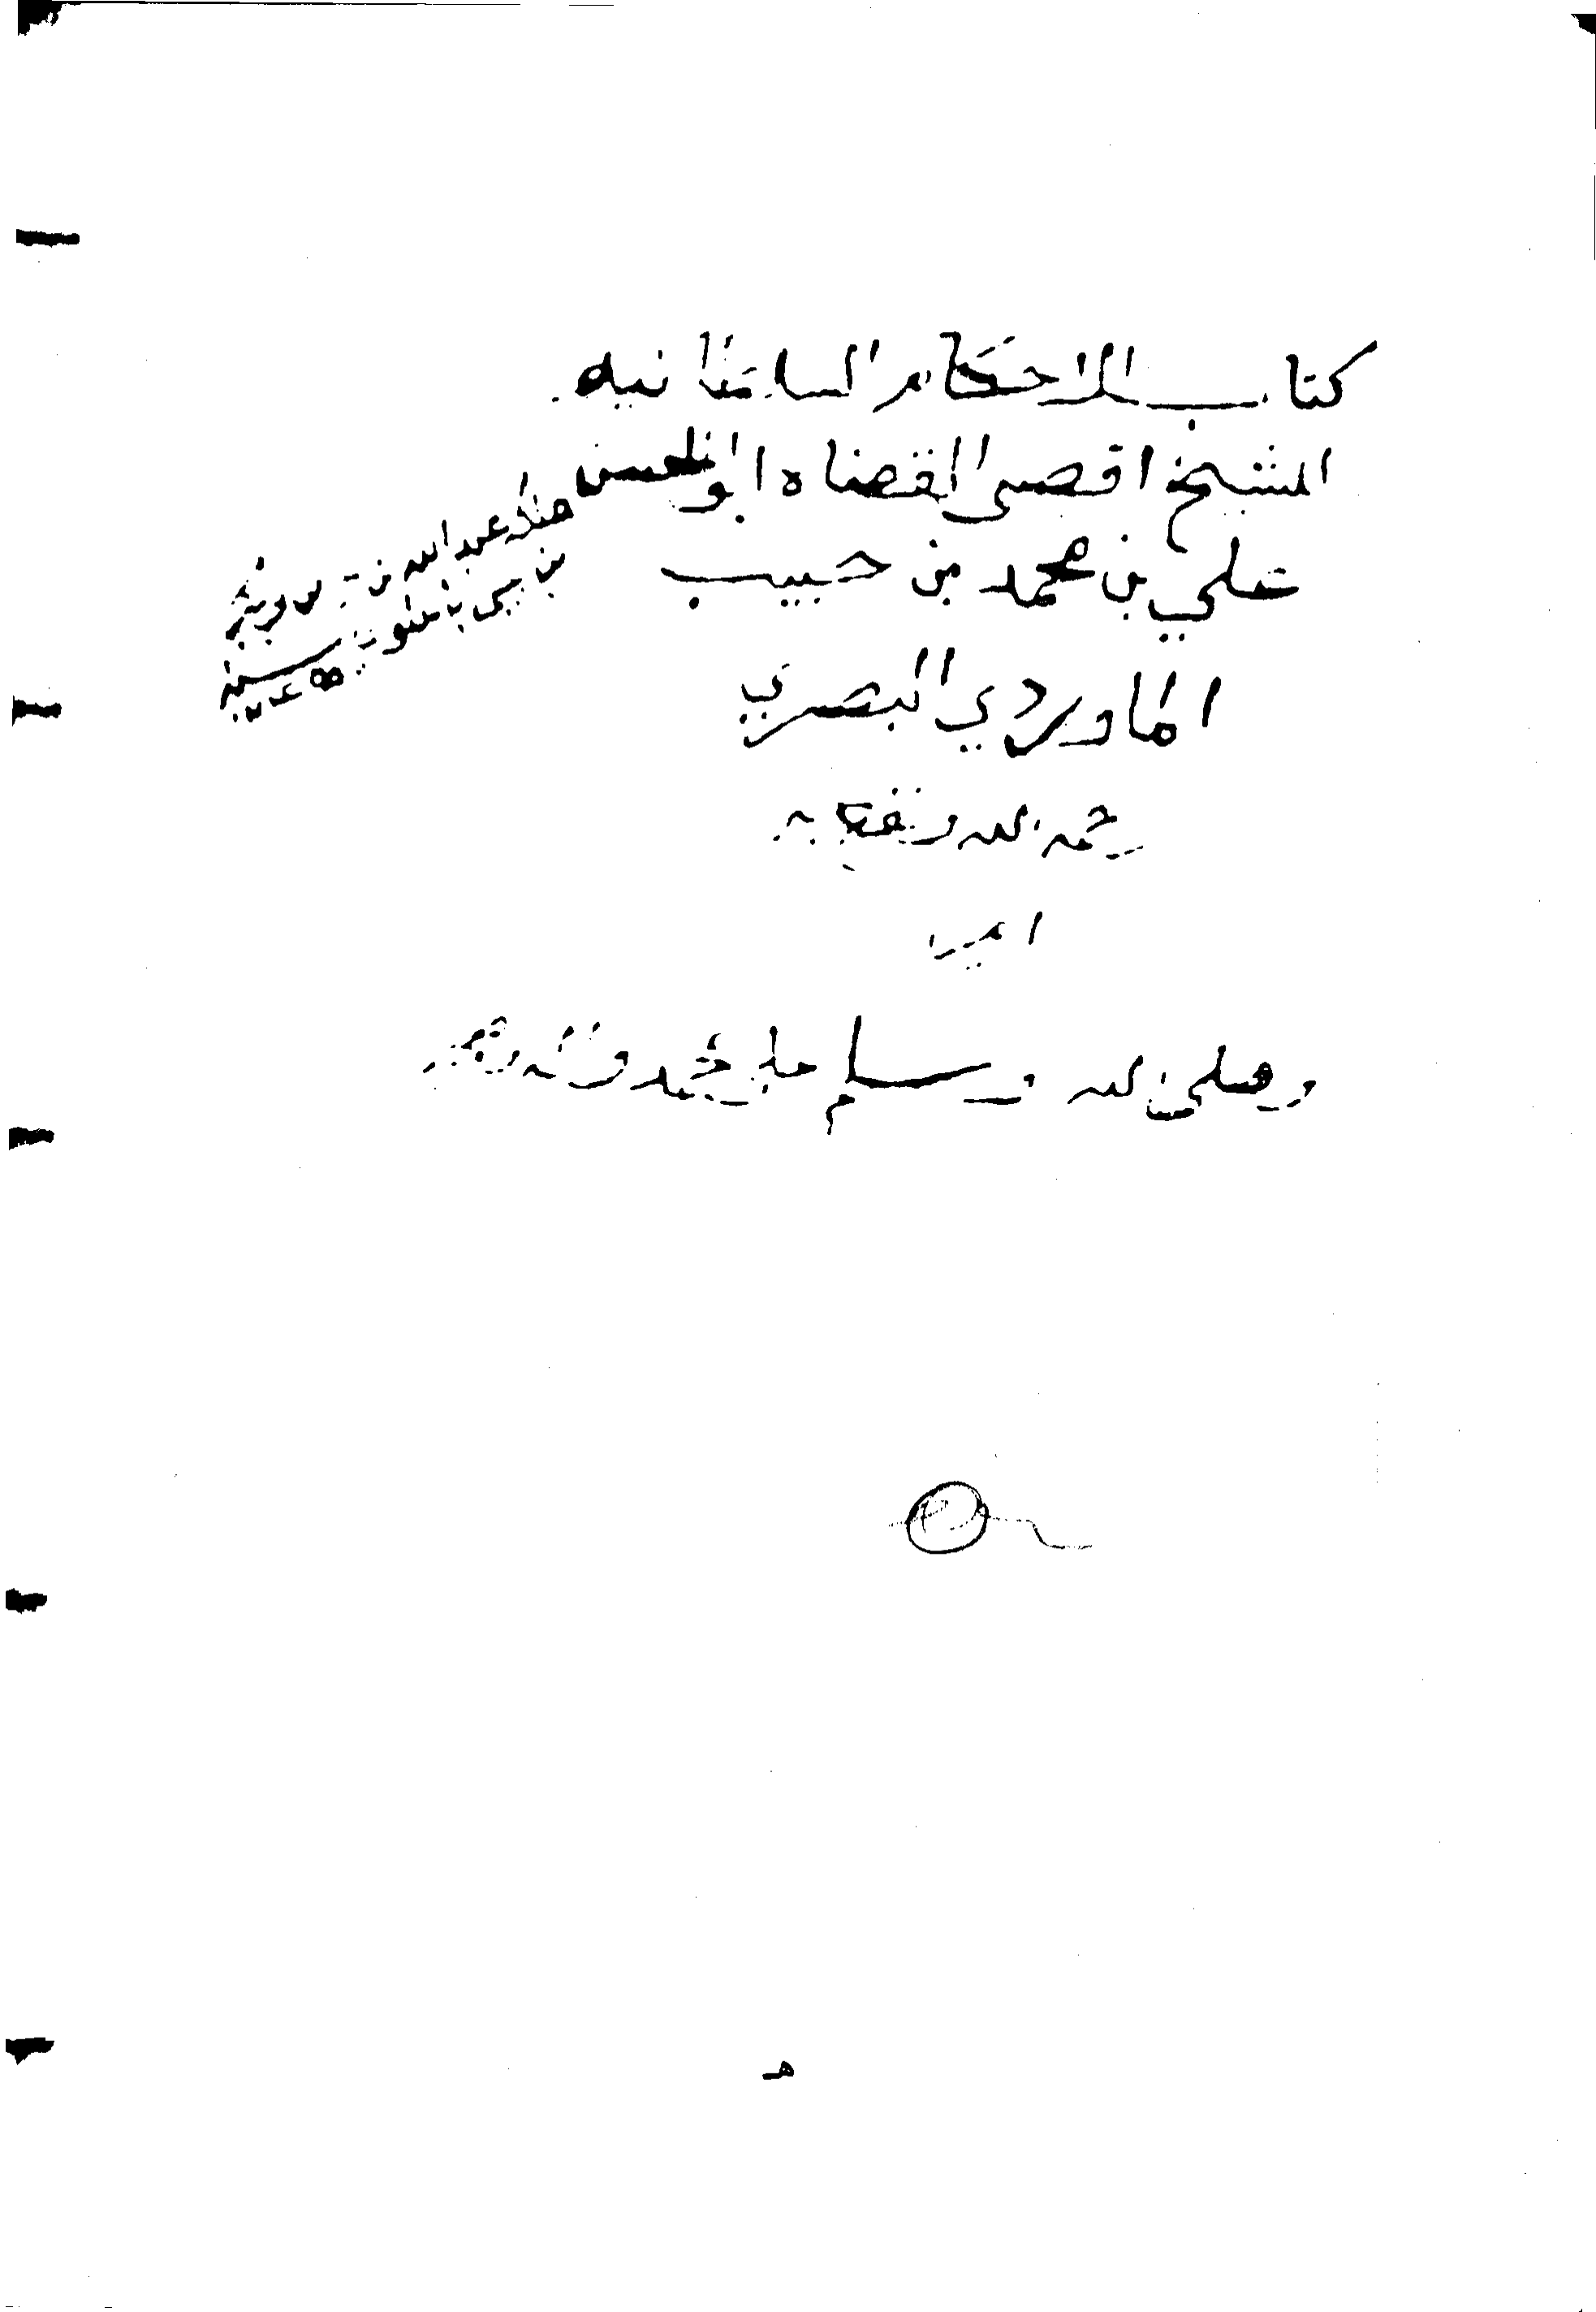 كتاب الاحكام السلطانيه
الشيخ اقضى القضاه ابو الحسن
علي بن محمد بن حبيب
الماوردي البصري
رحمه الله ونفع به
امين
وصلى الله وسلم على محمد وآله وصحبه
عبد الله بن
بن
هـ